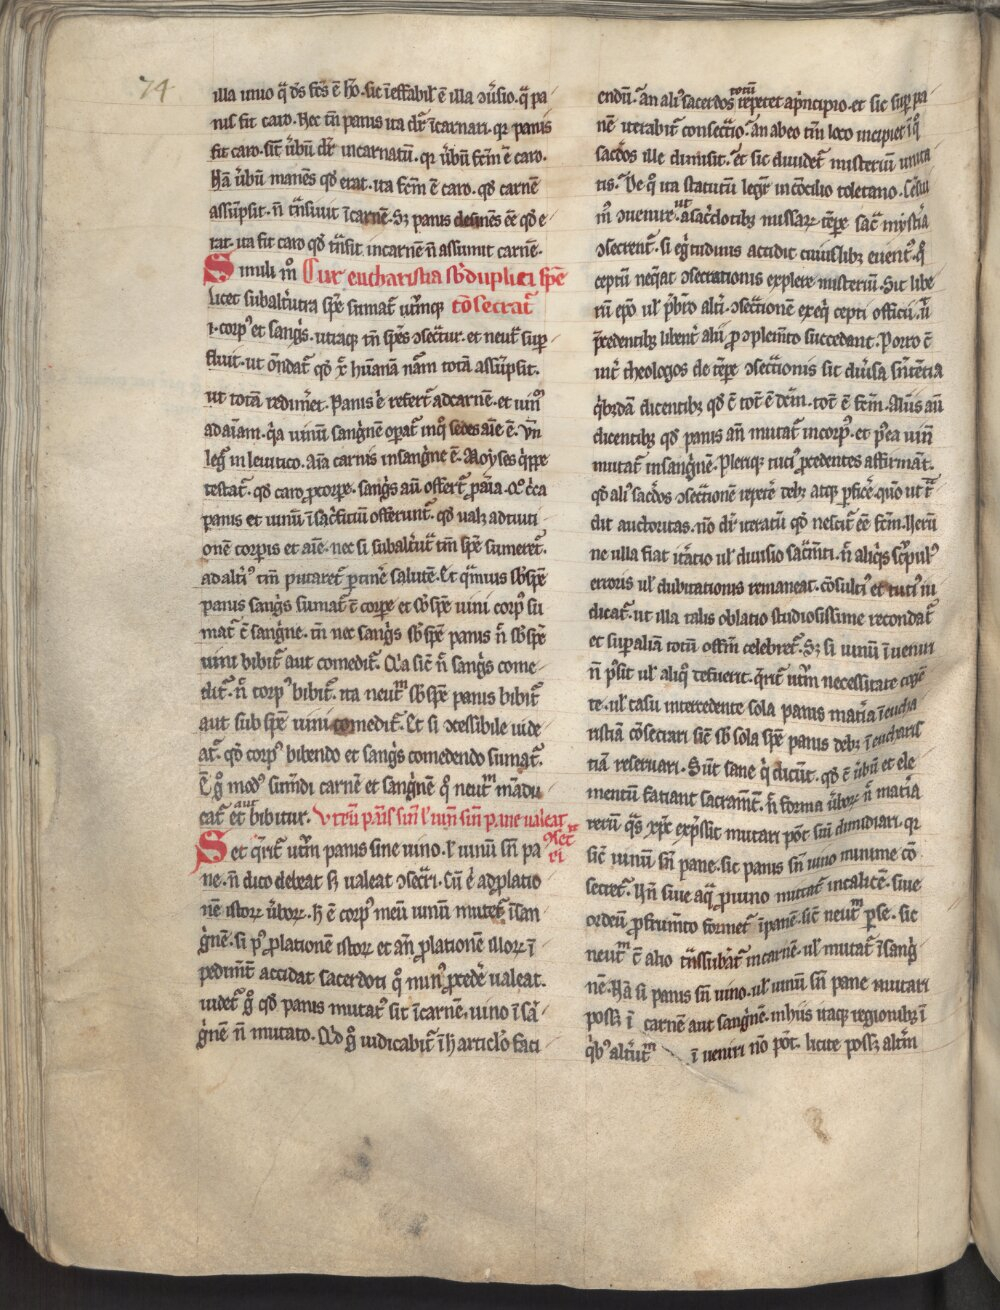 74
illa unio q̄ d̄s fc̄s ē hō. sic īeffabil' ē illa ꝯũsio. q̄ pa
nis fit caro. Nec tn̄ panis ita dr̄ īcarnari. qr panis
fit caro. sic̄ ũbũ dr̄ incarnatũ. qr ũbũ fc̄m ē caro.
Nā ũbũ manēs qđ erat. ita fc̄m ē caro. qđ carnē
assũpsit. n̄ t̃nsiuit ī carnē. Sꝫ panis desinēs eē qđ e
rat. ita fit caro qđ t̃nsit in carnē n̄ assumit carnē.
Simili m̊ Cur eucharistia sb̄ duplici sp̄e
licet sub alt̃utra sp̄e sumat̃ utr̃mque cōsecrat̃
.i. corp' et sangͥs. utraque tn̄ sp̄es ꝯsect̃ur. et neut̃ sup
fluit. ut oñdat̃ qđ x̄p̄c hũanā nãm totā assũpsit.
ut totā redim̃et. Panis .n. refert̃ ad carnē. et uinũ
ad aīam. qͥa uinũ sangͥnē opat̃ in q̊ sedes aīe ē. Vn̄
leg̃ in leuitico. Aīa carnis in sangͥne ē. Moyses qͥppe
testat̃. qđ caro ꝓ corpe. sangͥs aũ offert̃ ꝓ aīa. Id cͥca
panis et uinũ ī sacͥficiũ offerunt̃. qđ ualꝫ ad tuiti
onē corpis et aīe. nec si sub alt̃ut̃ tm̄ sp̄e sumeret̃.
ad alti' tm̄ putaret̃ ptinē salutē. Et qͣmuis sb̄ sp̄e
panis sangͥs sumat̃ c̄ corpe et sb̄ sp̄e uini corp' su
mat̃ c̄ sangͥne. tn̄ nec sangͥs sb̄ sp̄e panis n̄ sb̄ sp̄e
uini bibit̃ aut comedit̃. Qͥa sic̄ n̄ sangͥs come
dit̃. n̄ corp' bibit̃. ita neutͫ sb̄ sp̄e panis bibit̃
aut sub sp̄e uini comedit̃. Et si ꝯcessibile uide
at̃. qđ corp' bibendo et sangͥs comedendo sumat̃.
Ē g̊ mod' sum̃di carnē et sangͥnē q̊ neutͫ mādu
cat̃ aut et bibitur. Vtrũ panis sin̄ l' uinũ sin̄ pane ualeat
ꝯsec̃
ri
Set qͥrit̃ utr̃m panis sine uino. l' uinũ sn̄ pa
ne. n̄ dico debeat sꝫ ualeat ꝯsecͣri. Cũ .n. ad ꝓlatio
nē istoꝝ ũboꝝ. h̄ ē corp' meũ uinũ mutet̃ ī san
gͥnē. si p' ꝓlationē istoꝝ et an̄ ꝓlationē illoꝝ ī
pedim̄t accidat sacerdoti q̊ min' ꝓcedē ualeat.
uidet̃ g̊ qđ panis mutat' sit ī carnē. uino ī sā
gͥnē n̄ mutato. Qͥd g̊ iudicabit̃ ī h̄ articlo faci
endũ. An ali' sacerdos totũ repetet a pͥncipio. et sic sup pa
nē iterabit̃ consecͣtio. An ab eo tm̄ loco incipiet ī q̊
sac̄dos ille dimisit. et sic diuidet̃ misteriũ unita
tis. De q̊ ita statutũ legit̃ in cōcilio toletano. Cēsui
m' ꝯuenire ut a sac̄dotibꝫ missaꝝ tēpe sac̄ mystīa
ꝯsecrent̃. si egͥtudinis accidit cuiuslibꝫ euent'. q̊
ceptũ neq̄at ꝯsecrationis explere misteriũ. Sit libe
rũ ep̄o ul' p̄bro alt̃i ꝯsecͣtionē exeqͥ cepti officii. ũ
p̄cedentibꝫ libent̃ alii ꝓ ꝯplem̄to succedant. Porro c̄
int̃ theologos de tēpe ꝯsecͣtionis sit diũsa sñtētia
qͥbꝫdā dicentibꝫ qđ c̄ tot̄ ē dc̄m. tot̄ ē fc̄m. Aliis aũ
dicentibꝫ qđ panis an̄ mutat̃ in corp'. et p'ea uinũ
mutat̃ in sangͥnē. Plerique tuti' ꝓcedentes affirmāt.
qđ ali' sac̄dos ꝯsecͣtionē repetē debꝫ atque ꝑficē. qm̄o ut t̃
dit auctoritas. nō dr̄ iteratũ qđ nescit̃ eē fc̄m. Verũ
ne ulla fiat it̃atio ul' diuisio sac̃m̄ti. n̄ aliqͥs sc̃pul'
erroris ul' dubitationis remaneat. cōsulti' et tuti' iu
dicat̃. ut illa talis oblatio studiosissime recondat̃
et sup aliā totũ offm̄ celebret̃. Sꝫ si uinũ īueniri
n̄ p'sit ul' aliq̊ defuerit. qͥrit̃ utr̃m necessitate cogē
te. ul' casu intercedente sola panis matīa ī eucha
ristiā cōsecrari sic̄ sb̄ sola sp̄e panis debꝫ ī eucharis
tiā reseruari. Sũt sane qͥ dicũt. qđ c̄ ũbũ et ele
mentũ faciant sacram̄t. n̄ forma ũboꝝ n̄ matīa
rerũ q̄s xp̄c exp̄ssit mutari pōt sin̄ dimidiari. qr
sic̄ uinũ sn̄ pane. sic panis sn̄ uino minime cō
secret̃. Vn̄ siue aq̄ ꝓ uino mittat̃ in calicē. siue
ordeũ ꝓ frum̄to formet̃ ī panē. sic̄ neutͫ ꝑ se. sic
neutͫ c̄ alio t̃nssubāt̃ in carnē. ul' mutat̃ ī sangͥ
nē. Nā si panis sn̄ uino. ul' uinũ sn̄ pane mutari
possꝫ ī carnē aut sangͥnē. in hiis itaque regionibꝫ ī
qͥb' alt̃utͫ īueniri nō pōt. licite possꝫ altͥm